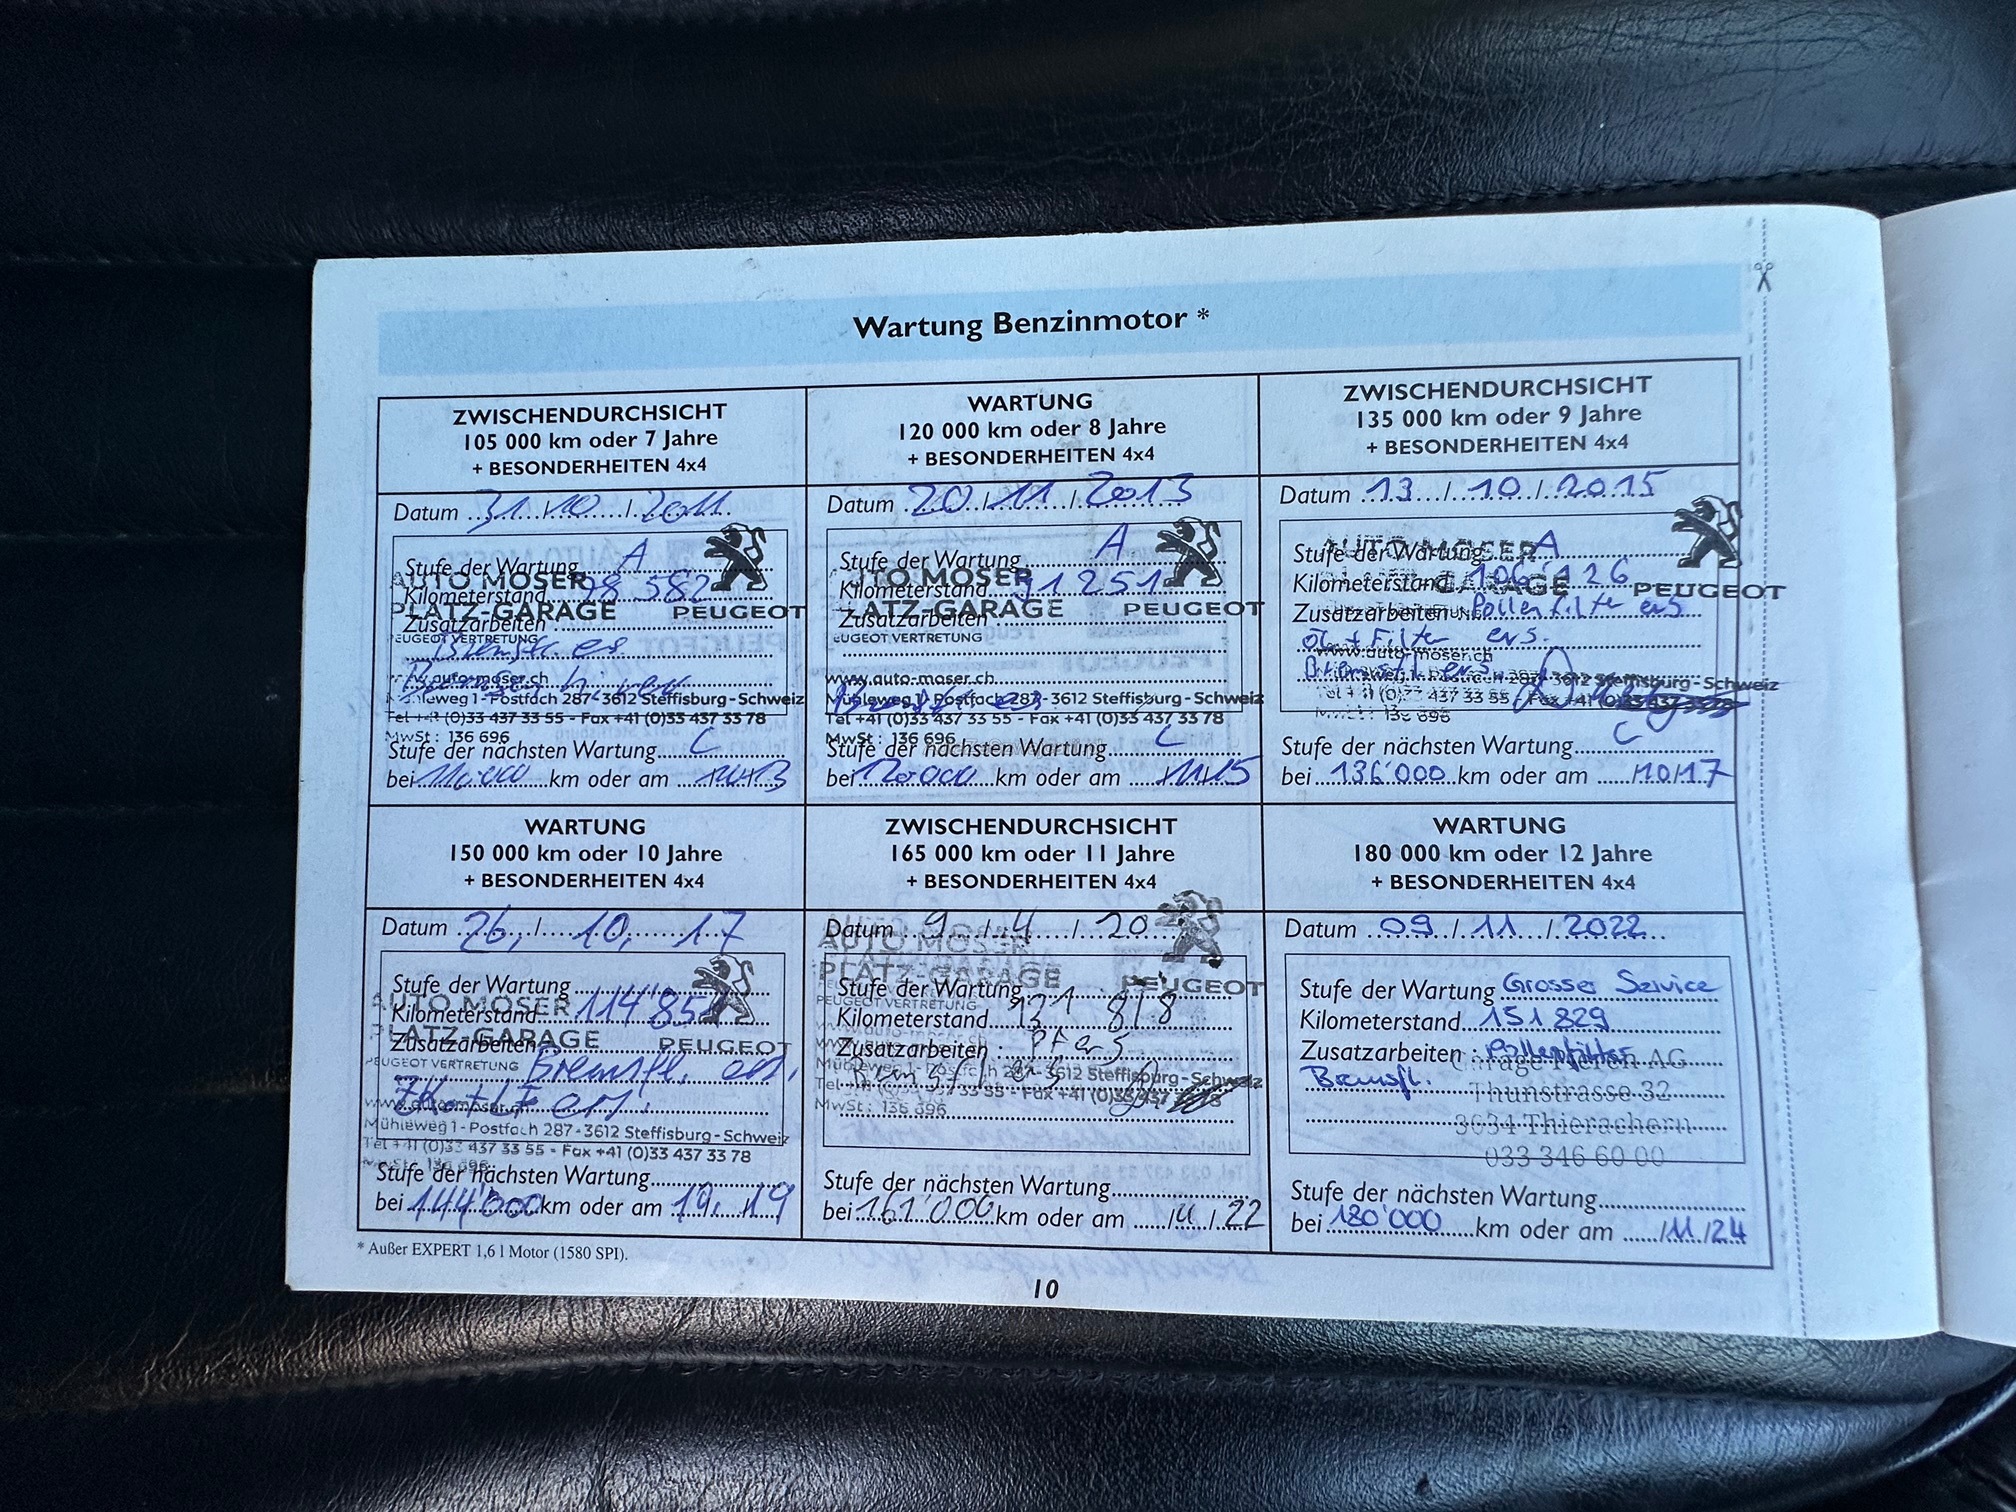 Wartung Benzinmotor *
ZWISCHENDURCHSICHT
105 000 km oder 7 Jahre
+ BESONDERHEITEN 4x4
Datum 31/10/2011
Stufe der Wartung A
AUTO MOSER
Kilometerstand 98 582
PLATZ-GARAGE PEUGEOT
Zusatzarbeiten
PEUGEOT VERTRETUNG
www.auto-moser.ch
Mühleweg 1 - Postfach 287 - 3612 Steffisburg - Schweiz
Tel +41 (0)33 437 33 55 - Fax +41 (0)33 437 33 78
MwSt : 136 696
Stufe der nächsten Wartung C
bei km oder am
WARTUNG
120 000 km oder 8 Jahre
+ BESONDERHEITEN 4x4
Datum 20/11/2013
Stufe der Wartung A
AUTO MOSER
Kilometerstand 91 251
PLATZ-GARAGE PEUGEOT
Zusatzarbeiten
PEUGEOT VERTRETUNG
www.auto-moser.ch
Mühleweg 1 - Postfach 287 - 3612 Steffisburg - Schweiz
Tel +41 (0)33 437 33 55 - Fax +41 (0)33 437 33 78
MwSt : 136 696
Stufe der nächsten Wartung C
bei 120'000 km oder am 11/15
ZWISCHENDURCHSICHT
135 000 km oder 9 Jahre
+ BESONDERHEITEN 4x4
Datum 13/10/2015
Stufe der Wartung A
AUTO MOSER
Kilometerstand 106'126
GARAGE PEUGEOT
Zusatzarbeiten Pollenfilter ers
Öl + Filter ers.
www.auto-moser.ch
Bremsfl. ers.
287 - 3612 Steffisburg - Schweiz
Tel +41 (0)33 437 33 55 Fax +41 (0)33 437
MwSt : 136 696
Stufe der nächsten Wartung C
bei 136'000 km oder am /10/17
WARTUNG
150 000 km oder 10 Jahre
+ BESONDERHEITEN 4x4
Datum 26. / 10. 17
Stufe der Wartung
AUTO MOSER
Kilometerstand 114'851
PLATZ-GARAGE PEUGEOT
Zusatzarbeiten
PEUGEOT VERTRETUNG Bremsfl. ers.
www.auto-moser.ch
Mühleweg 1 - Postfach 287 - 3612 Steffisburg - Schweiz
Tel +41 (0)33 437 33 55 - Fax +41 (0)33 437 33 78
MwSt : 136 696
Stufe der nächsten Wartung
bei 144'000 km oder am 19
ZWISCHENDURCHSICHT
165 000 km oder 11 Jahre
+ BESONDERHEITEN 4x4
Datum 9 / 4 / 20
AUTO MOSER
PLATZ-GARAGE PEUGEOT
Stufe der Wartung
PEUGEOT VERTRETUNG
Kilometerstand 131 818
www.auto-moser.ch
Zusatzarbeiten : Pf ers
Mühleweg 1 - Postfach 287 - 3612 Steffisburg - Schweiz
Tel 33 55 - Fax +41 (0)33 437 33 78
MwSt : 136 696
Stufe der nächsten Wartung
bei 161'000 km oder am /4/22
WARTUNG
180 000 km oder 12 Jahre
+ BESONDERHEITEN 4x4
Datum 09/11/2022
Stufe der Wartung Grosser Service
Kilometerstand 151 829
Zusatzarbeiten : Pollenfilter
Garage Pieren AG
Bremsfl.
Thunstrasse 32
3634 Thierachern
033 346 60 00
Stufe der nächsten Wartung
bei 180'000 km oder am /11/24
* Außer EXPERT 1,6 l Motor (1580 SPI).
10